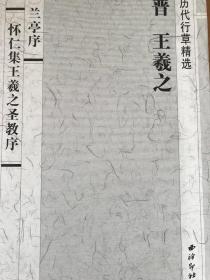 历代行草精选
晋 王羲之
兰亭序
怀仁集王羲之圣教序
西泠印社